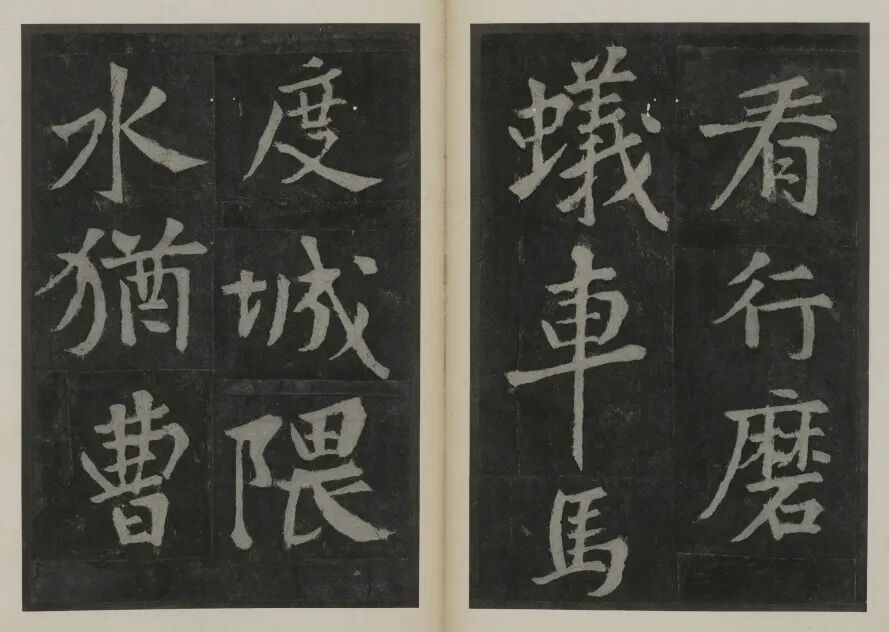 看行磨
蟻車馬
度城隈
水猶曹